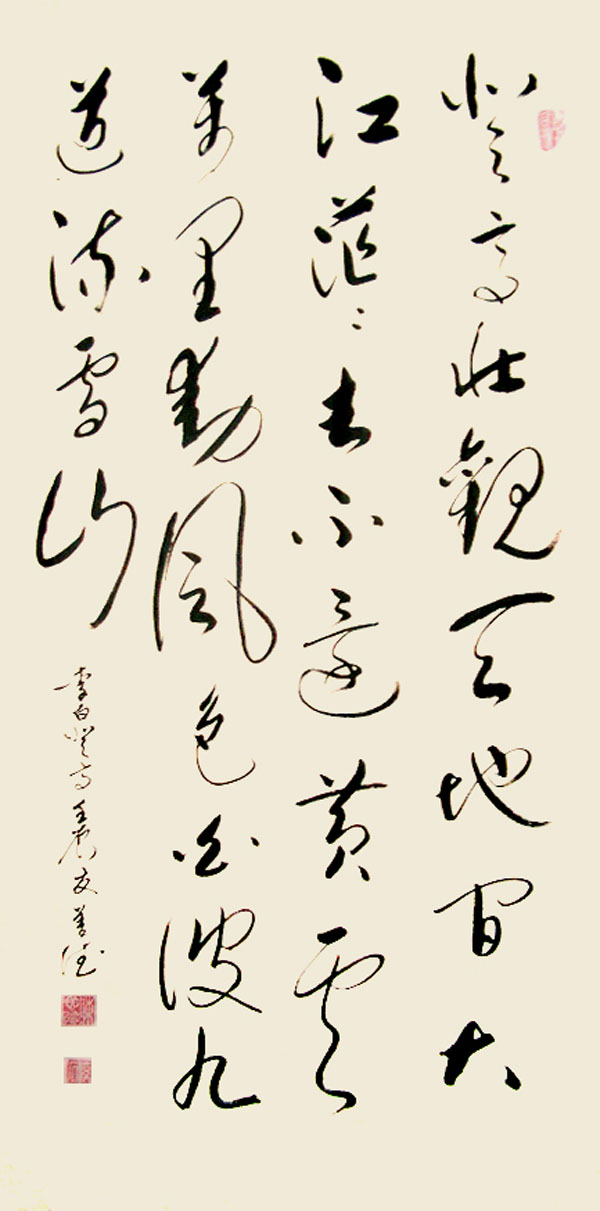 登高壯觀天地間大
江茫茫去不還黃雲
萬里動風色白波九
道流雪山
李白登高壬辰